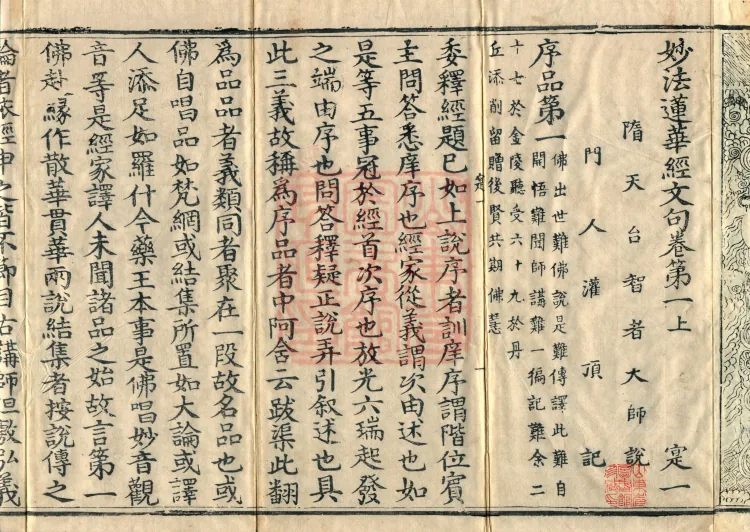 妙法蓮華經文句卷第一上 寔一
隋天台智者大師說
門人灌頂記
序品第一
佛出世難佛說是難傳譯此難自
開悟難聞師講難一徧記難余二
十七於金陵聽受六十九於丹
丘添削留贈後賢共期佛慧
委釋經題已如上說序者訓庠序謂階位賓
主問答悉庠序也經家從義謂次由述也如
是等五事冠於經首次序也放光六瑞起發
之端由序也問答釋疑正說弄引叙述也具
此三義故稱爲序品者中阿含云跋渠此翻
爲品品者義類同者聚在一段故名品也或
佛自唱品如梵網或結集所置如大論或譯
人添足如羅什今藥王本事是佛唱妙音觀
音等是經家譯人未聞諸品之始故言第一
佛赴緣作散華貫華兩說結集者按說傳之
論者依經申之皆不節目古講師但敷弘義